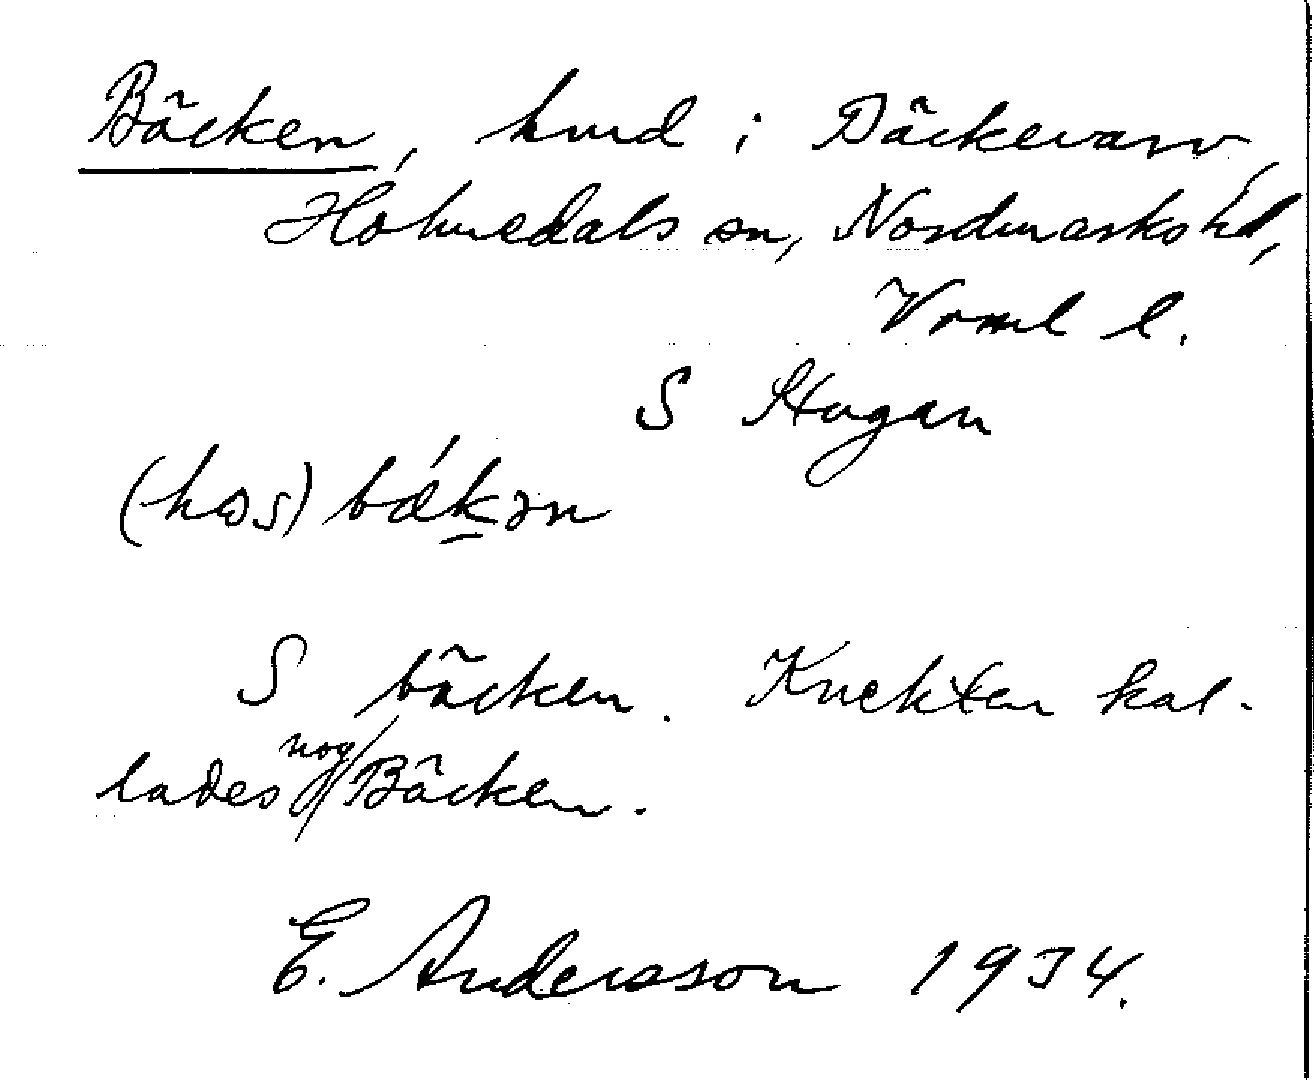 Bäcken, hmd i Däckevarv,
Holmedals sn, Nordmarks hd,
Vrml l.
S Stugan
(hɷs) bǽkən
S bäcken. Knekten kal-
lades nog Bäcken.
E. Andersson 1934.